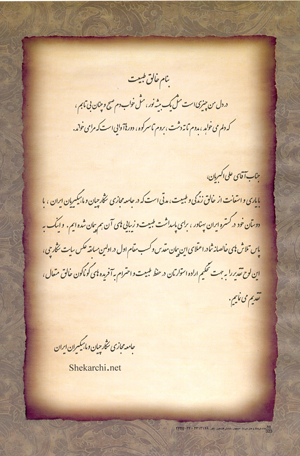 بنام خالق طبیعت
در دل من چیزی است مثل یک بیشه نور، مثل خواب دم صبح و چنان بی تابم،
که دلم می خواهد، بدوم تا ته دشت، بروم تا سر کوه، دورها آوایی است که مرا می خواند.
جناب آقای علی اکبریان،
با یاری و استعانت از خالق زندگی و طبیعت، مدتی است که در جامعه مجازی شکارچیان و ماهیگیران ایران، با
دوستان خود در گستره ایران پهناور، برای پاسداشت طبیعت و زیبایی های آن هم پیمان شده ایم. و اینک به
پاس تلاش های خالصانه شما در اعتلای این پیمان مقدس و کسب مقام اول در اولین مسابقه عکس سایت شکارچی،
این لوح تقدیر را به جهت تحکیم اراده استوارتان در حفظ طبیعت و احترام به آفریده های گوناگون خالق متعال،
تقدیم می نماییم.
جامعه مجازی شکارچیان و ماهیگیران ایران
Shekarchi.net